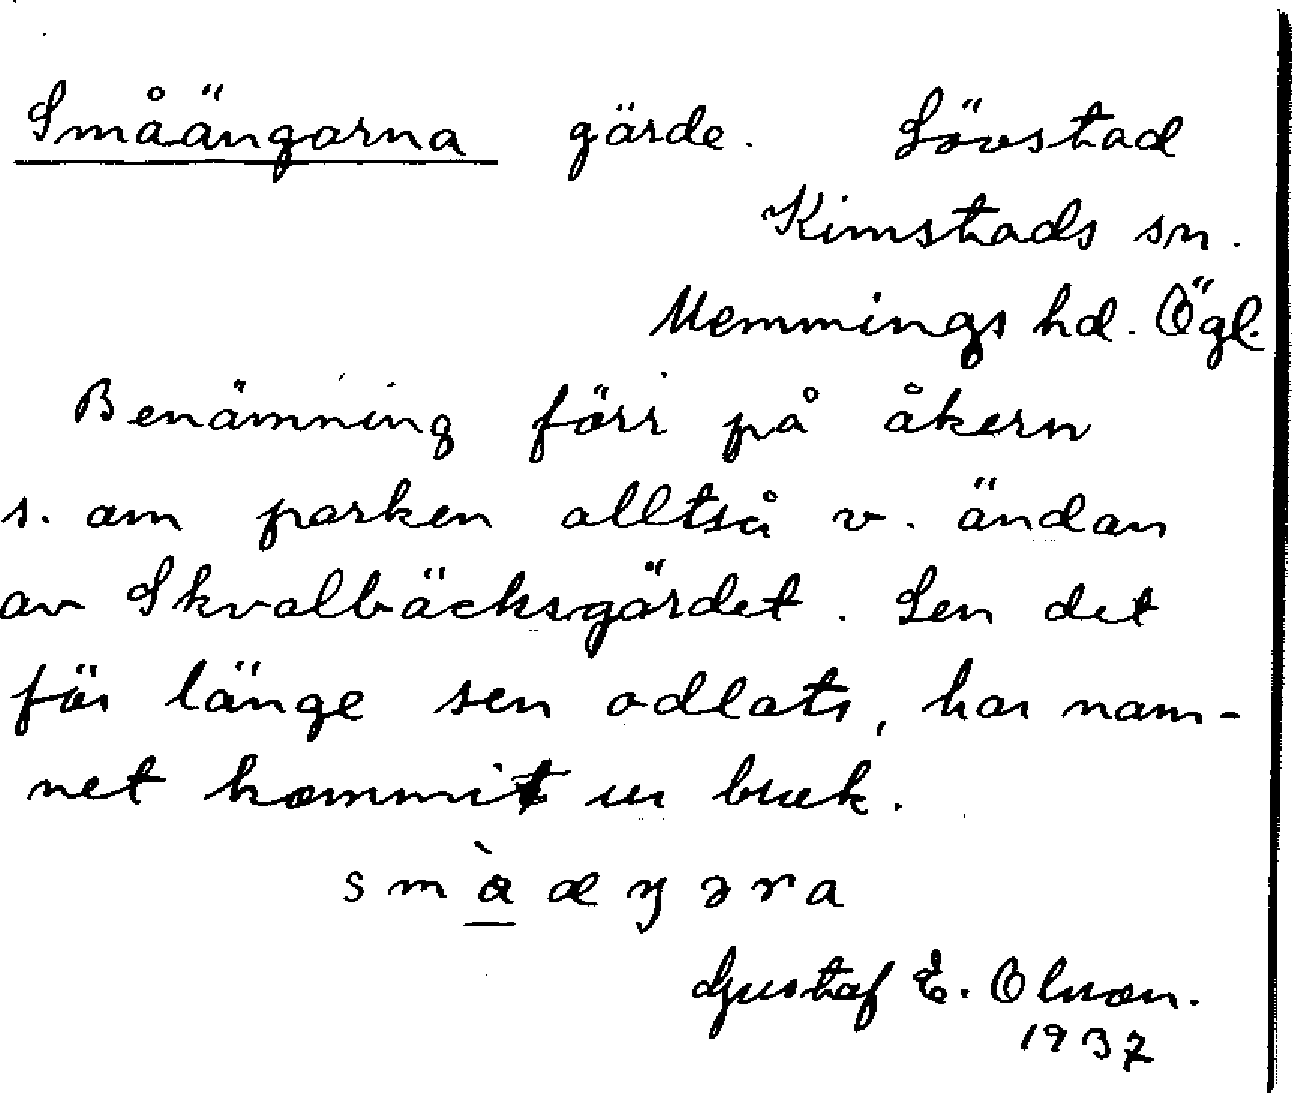 Småängarna gärde. Lövstad
Kimstads sn.
Memmings hd. Ögl.
Benämning förr på åkern
s. om parken alltså v. ändan
av Skvalbäcksgärdet. Sen det
för länge sen odlats, har nam-
net kommit ur bruk.
smàæŋɘra
Gustaf E. Olsson.
1937